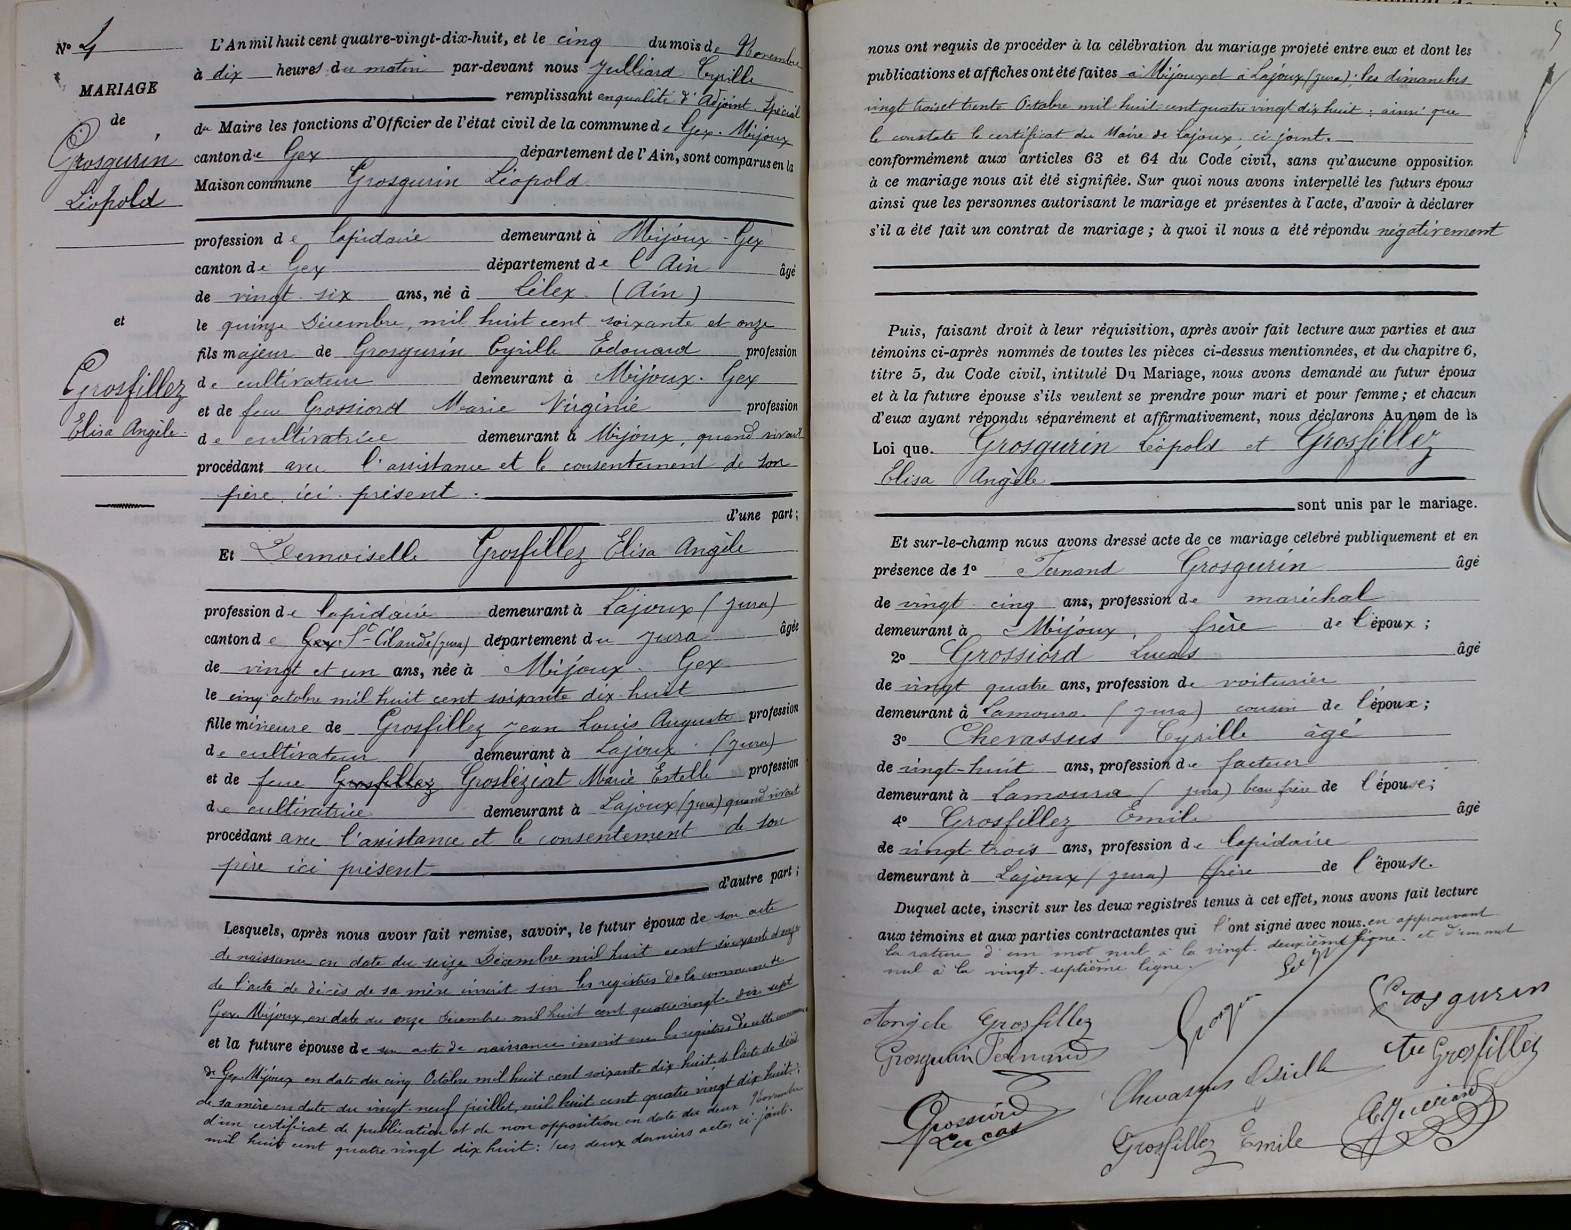 N° 4
MARIAGE
de
Grosgurin
Léopold
et
Grosfillez
Elisa Angèle
L'An mil huit cent quatre-vingt-dix-huit, et le cinq du mois de Novembre
à dix heures du matin par-devant nous Julliard Cyrille
remplissant en qualité d'Adjoint Spécial
du Maire les fonctions d'Officier de l'état civil de la commune de Gex-Mijoux
canton de Gex département de l'Ain, sont comparus en la
Maison commune Grosgurin Léopold
profession de lapidaire demeurant à Mijoux-Gex
canton de Gex département de l'Ain âgé
de vingt-six ans, né à Lélex (Ain)
le quinze Décembre, mil huit cent soixante et onze
fils majeur de Grosgurin Cyrille Edouard profession
de cultivateur demeurant à Mijoux-Gex
et de feue Grossiord Marie Virginie profession
de cultivatrice demeurant à Mijoux, quand vivait
procédant avec l'assistance et le consentement de son
père ici présent.
d'une part;
Et Demoiselle Grosfillez Elisa Angèle
profession de lapidaire demeurant à Lajoux (Jura)
canton de Gex St Claude (Jura) département du Jura âgée
de vingt et un ans, née à Mijoux-Gex
le cinq octobre mil huit cent soixante dix-huit
fille mineure de Grosfillez Jean Louis Auguste profession
de cultivateur demeurant à Lajoux (Jura)
et de feue Grosfillez Grosléziat Marie Estelle profession
de cultivatrice demeurant à Lajoux (Jura) quand vivait
procédant avec l'assistance et le consentement de son
père ici présent
d'autre part;
Lesquels, après nous avoir fait remise, savoir, le futur époux de son acte
de naissance en date du seize Décembre mil huit cent soixante et onze
de l'acte de décès de sa mère inscrit sur les registres de la commune de
Gex-Mijoux, en date du onze Décembre mil huit cent quatre vingt dix sept
et la future épouse de son acte de naissance inscrit sur les registres de cette commune
de Gex-Mijoux en date du cinq Octobre mil huit cent soixante dix huit, de l'acte de décès
de sa mère en date du vingt-neuf juillet, mil huit cent quatre vingt dix huit;
d'un certificat de publication et de non opposition en date du deux Novembre
mil huit cent quatre vingt dix huit: ces deux derniers actes ci joint.
nous ont requis de procéder à la célébration du mariage projeté entre eux et dont les
publications et affiches ont été faites à Mijoux et à Lajoux (Jura); les dimanches
vingt trois et trente Octobre mil huit cent quatre vingt dix huit; ainsi que
le constate le certificat du Maire de Lajoux, ci joint.
conformément aux articles 63 et 64 du Code civil, sans qu'aucune opposition
à ce mariage nous ait été signifiée. Sur quoi nous avons interpellé les futurs époux
ainsi que les personnes autorisant le mariage et présentes à l'acte, d'avoir à déclarer
s'il a été fait un contrat de mariage; à quoi il nous a été répondu négativement
Puis, faisant droit à leur réquisition, après avoir fait lecture aux parties et aux
témoins ci-après nommés de toutes les pièces ci-dessus mentionnées, et du chapitre 6,
titre 5, du Code civil, intitulé Du Mariage, nous avons demandé au futur époux
et à la future épouse s'ils veulent se prendre pour mari et pour femme; et chacun
d'eux ayant répondu séparément et affirmativement, nous déclarons Au nom de la
Loi que. Grosgurin Léopold et Grosfillez
Elisa Angèle
sont unis par le mariage.
Et sur-le-champ nous avons dressé acte de ce mariage célébré publiquement et en
présence de 1° Fernand Grosgurin âgé
de vingt-cinq ans, profession de maréchal
demeurant à Mijoux, frère de l'époux;
2° Grossiord Lucas âgé
de vingt quatre ans, profession de voiturier
demeurant à Lamoura (Jura) cousin de l'époux;
3° Chevassus Cyrille âgé
de vingt-huit ans, profession de facteur
demeurant à Lamoura (Jura) beau frère de l'épouse;
4° Grosfillez Emile âgé
de vingt trois ans, profession de lapidaire
demeurant à Lajoux (Jura) frère de l'épouse.
Duquel acte, inscrit sur les deux registres tenus à cet effet, nous avons fait lecture
aux témoins et aux parties contractantes qui l'ont signé avec nous en approuvant
la rature d'un mot nul à la vingt-deuxième ligne et d'un mot
nul à la vingt-septième ligne.
Angele Grosfillez
Grosgurin
Grosgurin Fernand
Ate Grosfillez
Chevassus Cirille
Grossiord
Lucas
Grosfillez Emile
C. Julliard